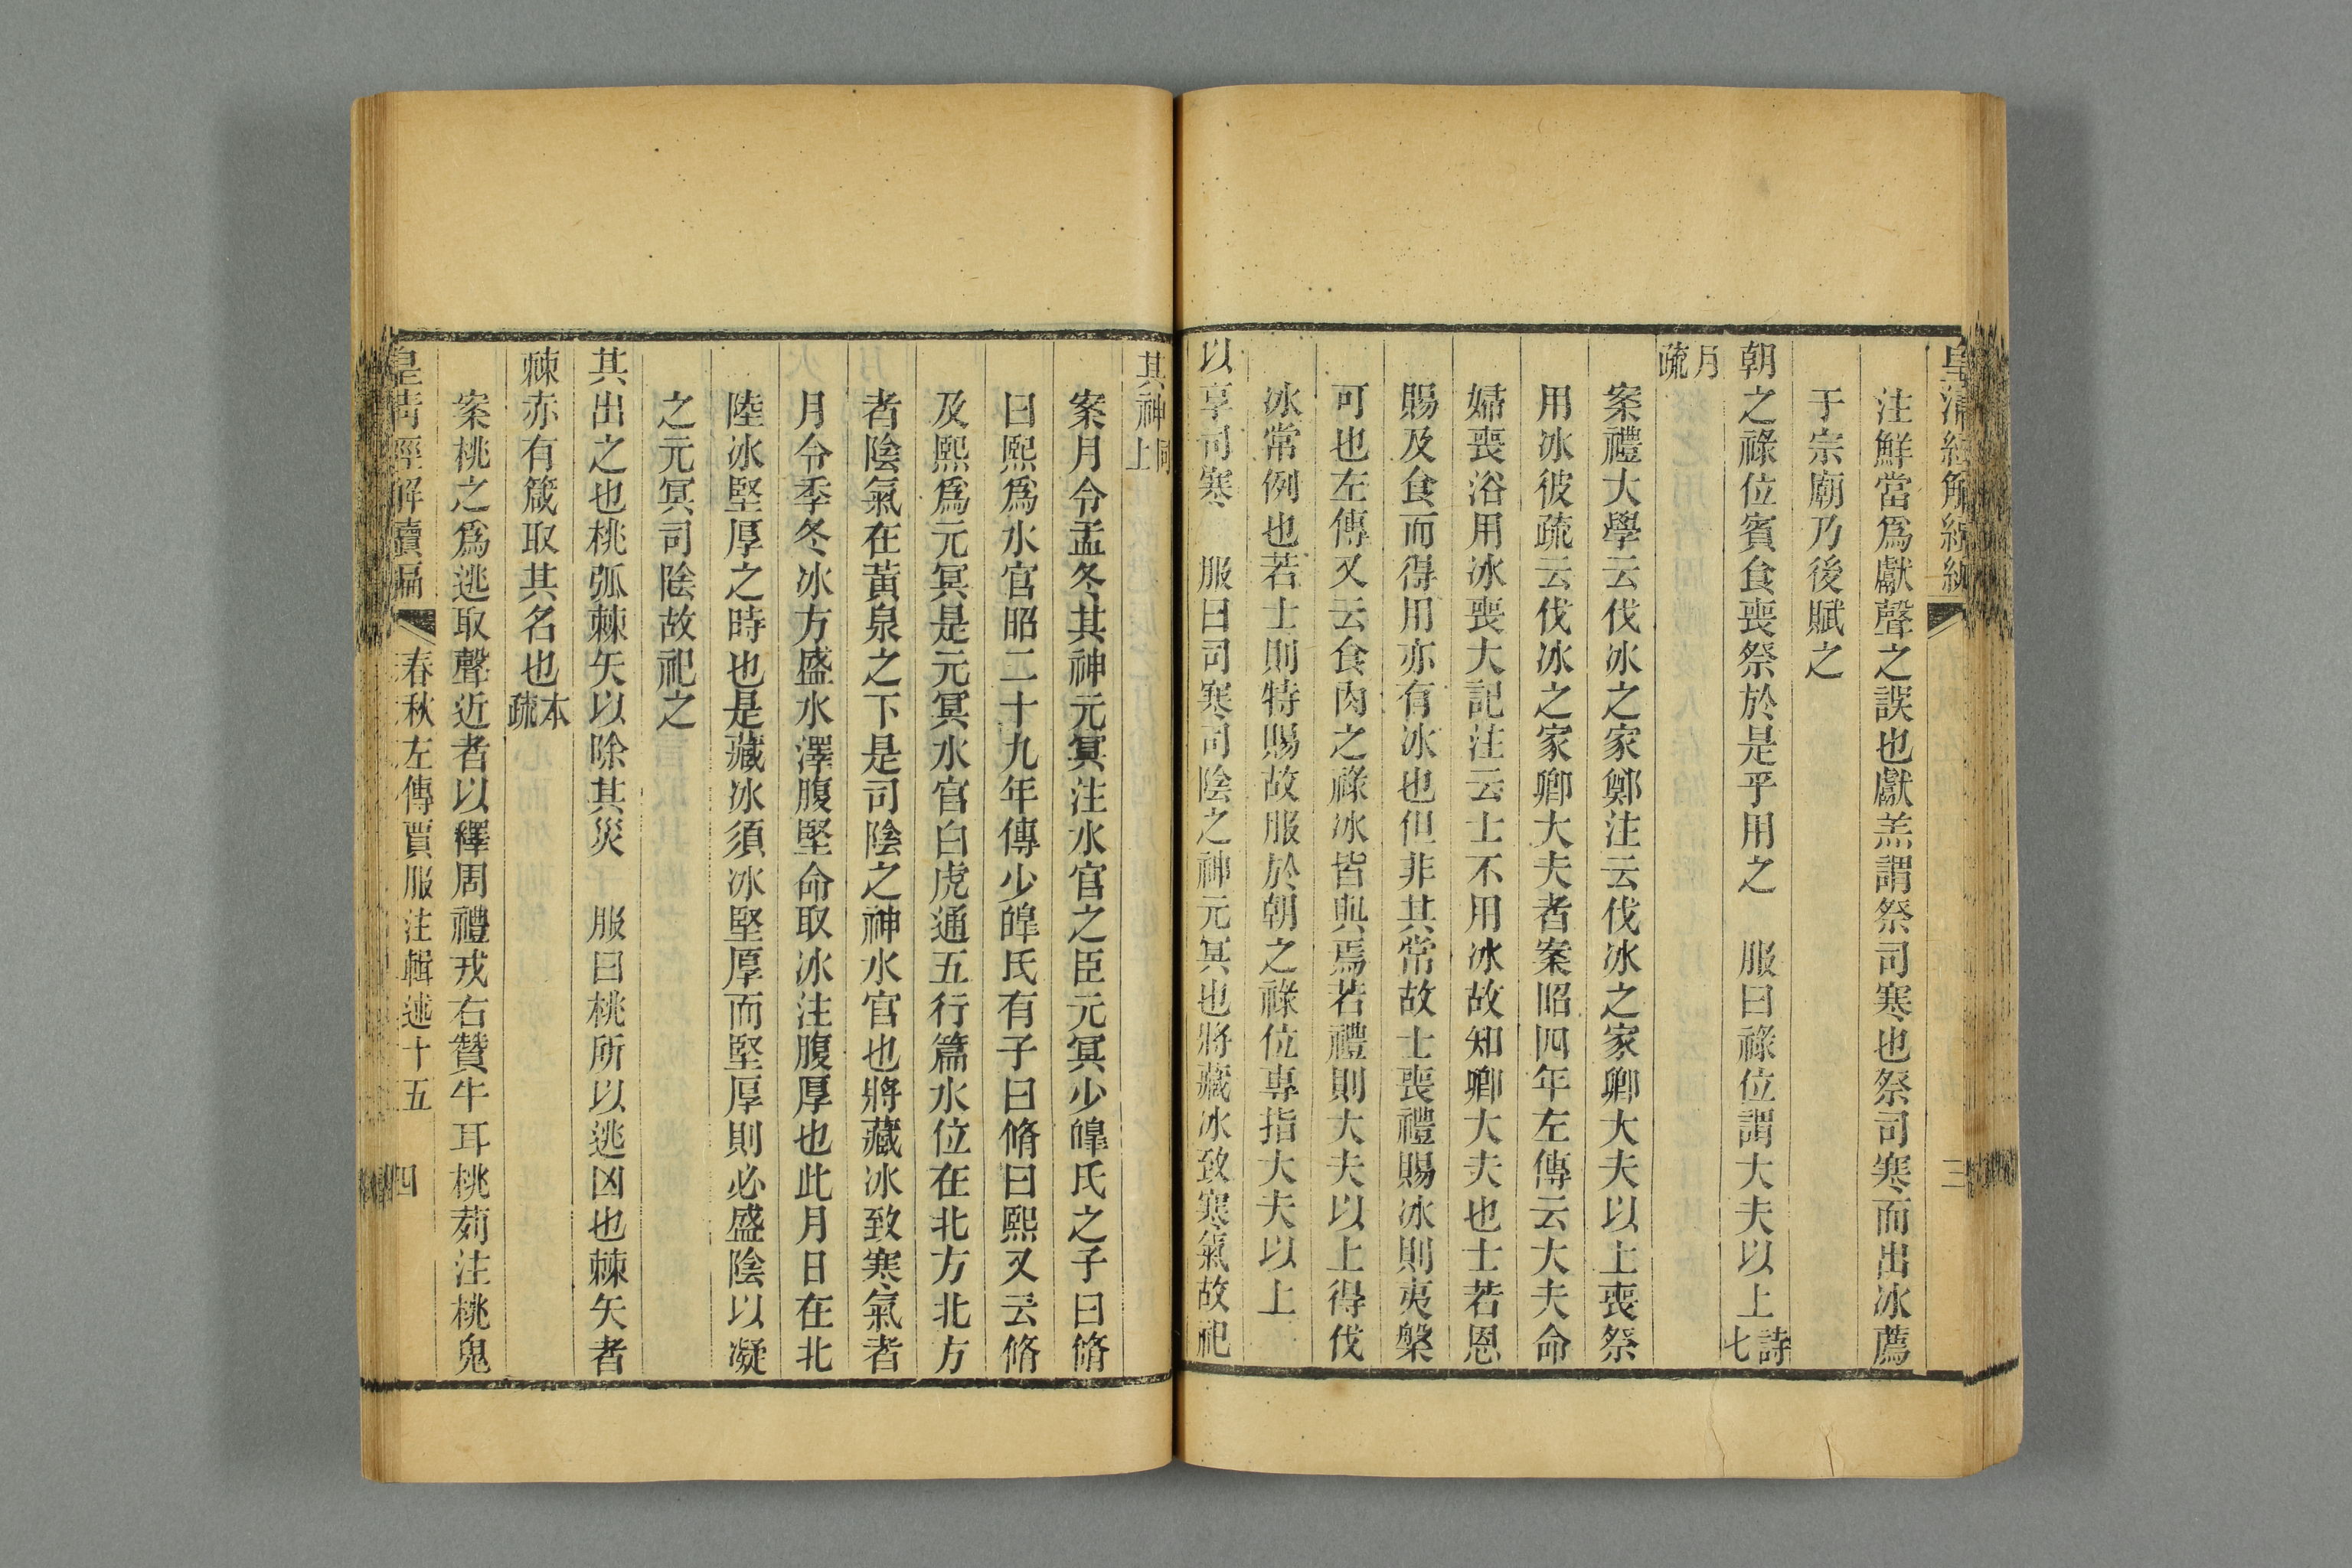 皇清經解續編
三
注鮮當爲獻聲之誤也獻羔謂祭司寒也祭司寒而出冰薦
于宗廟乃後賦之
朝之祿位賓食喪祭於是乎用之　服曰祿位謂大夫以上詩七
月疏
案禮大學云伐冰之家鄭注云伐冰之家卿大夫以上喪祭
用冰彼疏云伐冰之家卿大夫者案昭四年左傳云大夫命
婦喪浴用冰喪大記注云士不用冰故知卿大夫也士若恩
賜及食而得用亦有冰也但非其常故士喪禮賜冰則夷槃
可也左傳又云食肉之祿冰皆與焉若禮則大夫以上得伐
冰常例也若士則特賜故服於朝之祿位專指大夫以上
以享司寒　服曰司寒司陰之神元冥也將藏冰致寒氣故祀
其神同上
案月令孟冬其神元冥注水官之臣元冥少皞氏之子曰脩
曰熙爲水官昭二十九年傳少皞氏有子曰脩曰熙又云脩
及熙爲元冥是元冥水官白虎通五行篇水位在北方北方
者陰氣在黃泉之下是司陰之神水官也將藏冰致寒氣者
月令季冬冰方盛水澤腹堅命取冰注腹厚也此月日在北
陸冰堅厚之時也是藏冰須冰堅厚而堅厚則必盛陰以凝
之元冥司陰故祀之
其出之也桃弧棘矢以除其災　服曰桃所以逃凶也棘矢者
棘赤有箴取其名也本疏
案桃之爲逃取聲近者以繹周禮戎右贊牛耳桃茢注桃鬼
皇清經解續編
春秋左傳賈服注輯述十五
四